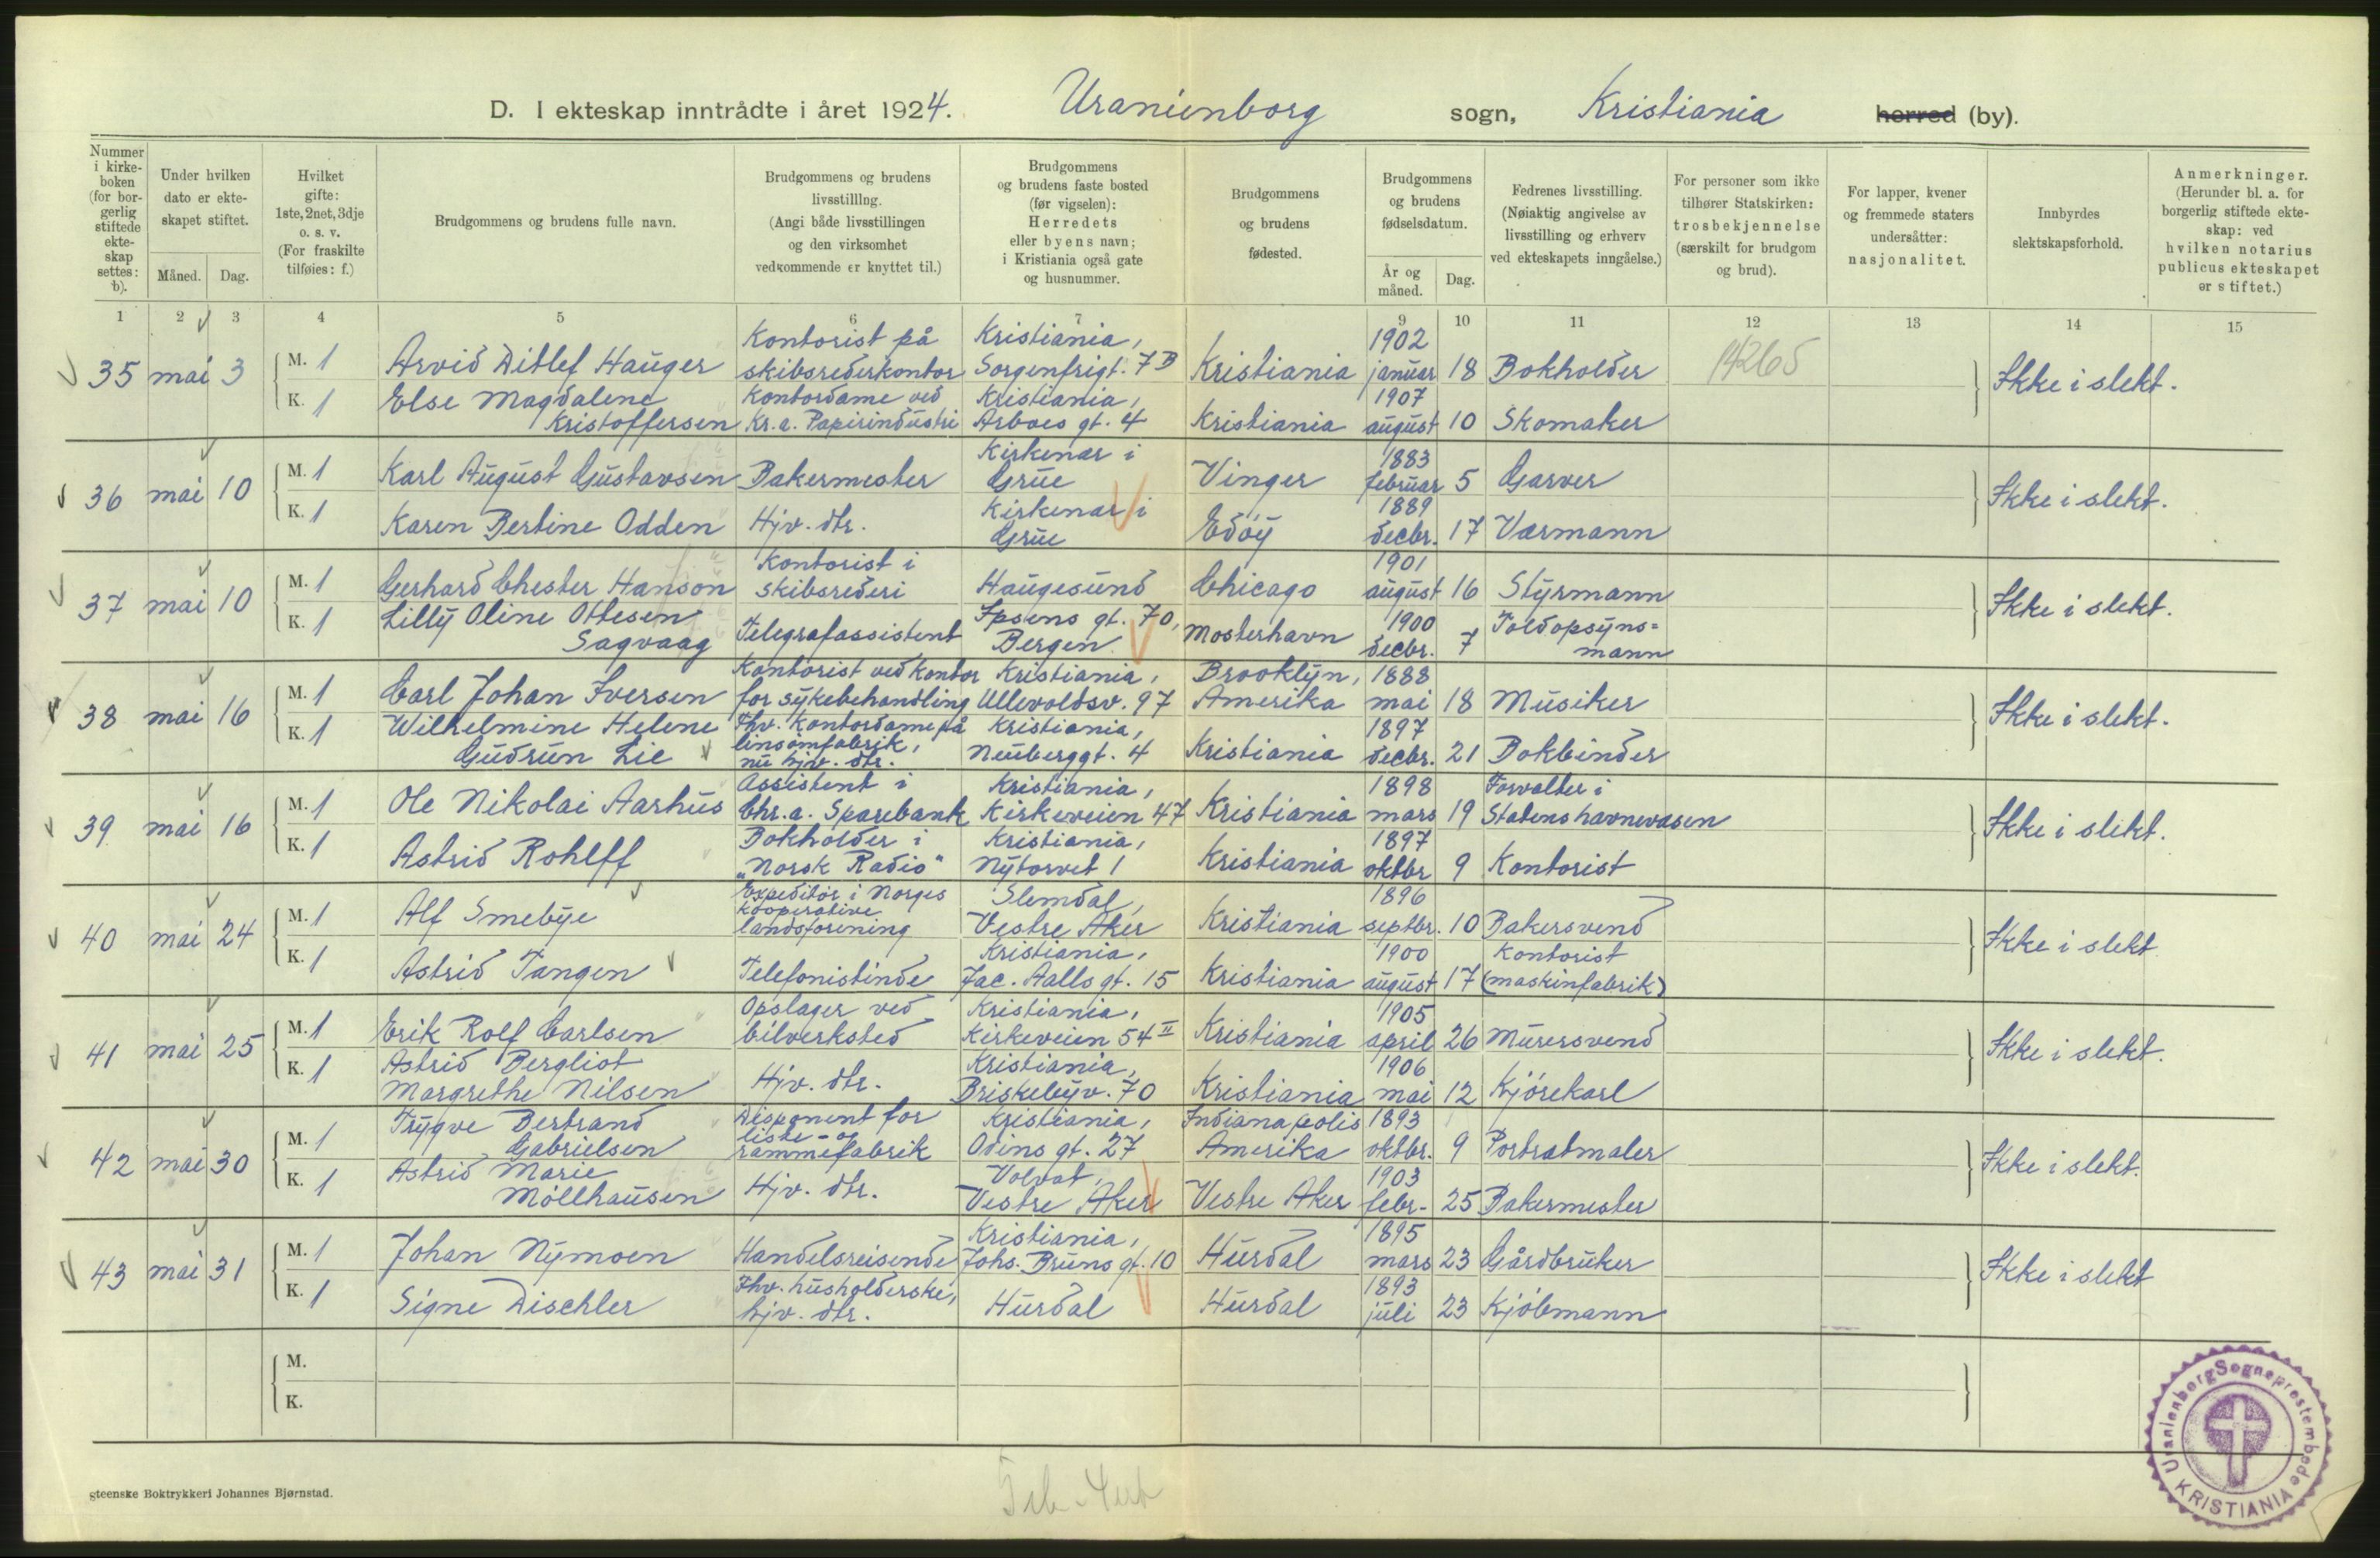 D. I ekteskap inntrådte i året 1924. Uranienborg sogn, Kristiania herred (by).
Nummer i kirke- boken (for bor- gerlig stiftede ekte- skap settes: b).
Under hvilken dato er ekte- skapet stiftet.
Måned. Dag.
Hvilket gifte: 1ste, 2net, 3dje o. s. v. (For fraskilte tilføies: f.)
Brudgommens og brudens fulle navn.
Brudgommens og brudens livsstilllng. (Angi både livsstillingen og den virksomhet vedkommende er knyttet til.)
Brudgommens og brudens faste bosted (før vigselen): Herredets eller byens navn; i Kristiania også gate og husnummer.
Brudgommens og brudens fødested.
Brudgommens og brudens fødselsdatum.
År og måned. Dag.
Fedrenes livsstilling. (Nøiaktig angivelse av livsstilling og erhverv ved ekteskapets inngåelse.)
For personer som ikke tilhører Statskirken: trosbekjennelse (særskilt for brudgom og brud).
For lapper, kvener og fremmede staters undersåtter: nasjonalitet.
Innbyrdes slektskapsforhold.
Anmerkninger. (Herunder bl. a. for borgerlig stiftede ekte- skap: ved hvilken notarius publicus ekteskapet er stiftet.)
1 2 3 4 5 6 7 8 9 10 11 12 13 14 15
35 mai 3 M. 1 Arvid Ditlef Hauger Kontorist på skibsrederkontor Kristiania, Sorgenfrigt. 7 B Kristiania 1902 januar 18 Bokholder 14265 Ikke i slekt.
K. 1 Else Magdalene Kristoffersen Kontordame ved Kr.a. Papirindustri Kristiania, Arboes gt. 4 Kristiania 1907 august 10 Skomaker
36 mai 10 M. 1 Karl August Gustavsen Bakermester Kirkenær i Grue Vinger 1883 februar 5 Garver Ikke i slekt.
K. 1 Karen Bertine Odden Hjv. dtr. Kirkenær i Grue Edøy 1889 decbr. 17 Værmann
37 mai 10 M. 1 Gerhard Chester Hanson Kontorist i skibsrederi Haugesund Chicago 1901 august 16 Styrmann Ikke i slekt.
K. 1 Lilly Oline Ottesen Sagvaag Telegrafassistent Ipsens gt. 70, Bergen Mosterhavn 1900 decbr. 7 Toldopsyns= mann
38 mai 16 M. 1 Carl Johan Iversen Kontorist ved kontor for sykebehandling Kristiania, Ullevoldsv. 97 Brooklyn, Amerika 1888 mai 18 Musiker Ikke i slekt.
K. 1 Wilhelmine Helene Gudrun Lie Fhv. kontordame på linsømfabrik, nu hjv. dtr. Kristiania, Neuberggt. 4 Kristiania 1897 decbr. 21 Bokbinder
39 mai 16 M. 1 Ole Nikolai Aarhus Assistent i Chr.a. Sparebank Kristiania, Kirkeveien 47 Kristiania 1898 mars 19 Forvalter i Statens havnevæsen Ikke i slekt.
K. 1 Astrid Rohlff Bokholder i „Norsk Radio" Kristiania, Nytorvet 1 Kristiania 1897 oktbr 9 Kontorist
40 mai 24 M. 1 Alf Smebye Expeditør i Norges kooperative landsforening Slemdal, Vestre Aker Kristiania 1896 septbr. 10 Bakersvend Ikke i slekt
K. 1 Astrid Tangen Telefonistinde Kristiania, Jac. Aalls gt. 15 Kristiania 1900 august 17 Kontorist (maskinfabrik)
41 mai 25 M. 1 Erik Rolf Carlsen Opslager ved bilverksted Kristiania, Kirkeveien 54 II Kristiania 1905 april 26 Murersvend Ikke i slekt.
K. 1 Astrid Bergliot Margrethe Nilsen Hjv. dtr. Kristiania, Briskebyv. 70 Kristiania 1906 mai 12 Kjørekarl
42 mai 30 M. 1 Trygve Bertrand Gabrielsen Disponent for liste- og rammefabrik Kristiania, Odins gt. 27 Indianapolis Amerika 1893 oktbr. 9 Portrætmaler Ikke i slekt.
K. 1 Astrid Marie Møllhausen Hjv. dtr. Volvat, Vestre Aker Vestre Aker 1903 febr. 25 Bakermester
43 mai 31 M. 1 Johan Nymoen Handelsreisende Kristiania, Johs. Bruns gt. 10 Hurdal 1895 mars 23 Gårdbruker Ikke i slekt
K. 1 Signe Dischler Fhv. husholderske, hjv. dtr. Hurdal Hurdal 1893 juli 23 Kjøbmann
M.
K.
gteenske Boktrykkeri Johannes Bjørnstad.
Uranienborg Sogneprestembede KRISTIANIA